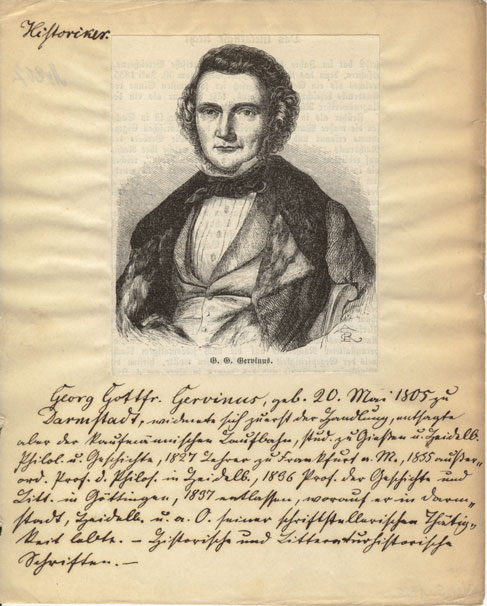 Historiker.
G. G. Gervinus.
Georg Gottfr. Gervinus, geb. 20. Mai 1805 zu
Darmstadt, widmete sich zuerst der Handlung, entsagte
aber der kaufmännischen Laufbahn, stud. zu Gießen u. Heidelb.
Philol. u. Geschichte, 1827 Lehrer zu Frankfurt a. M., 1835 außer-
ord. Prof. d. Philos. in Heidelb., 1836 Prof. der Geschichte und
Litt. in Göttingen, 1837 entlassen, worauf er in Darm-
stadt, Heidelb. u. a. O. seiner schriftstellerischen Thätig-
keit lebte. – Historische und Litteraturhistorische
Schriften. –